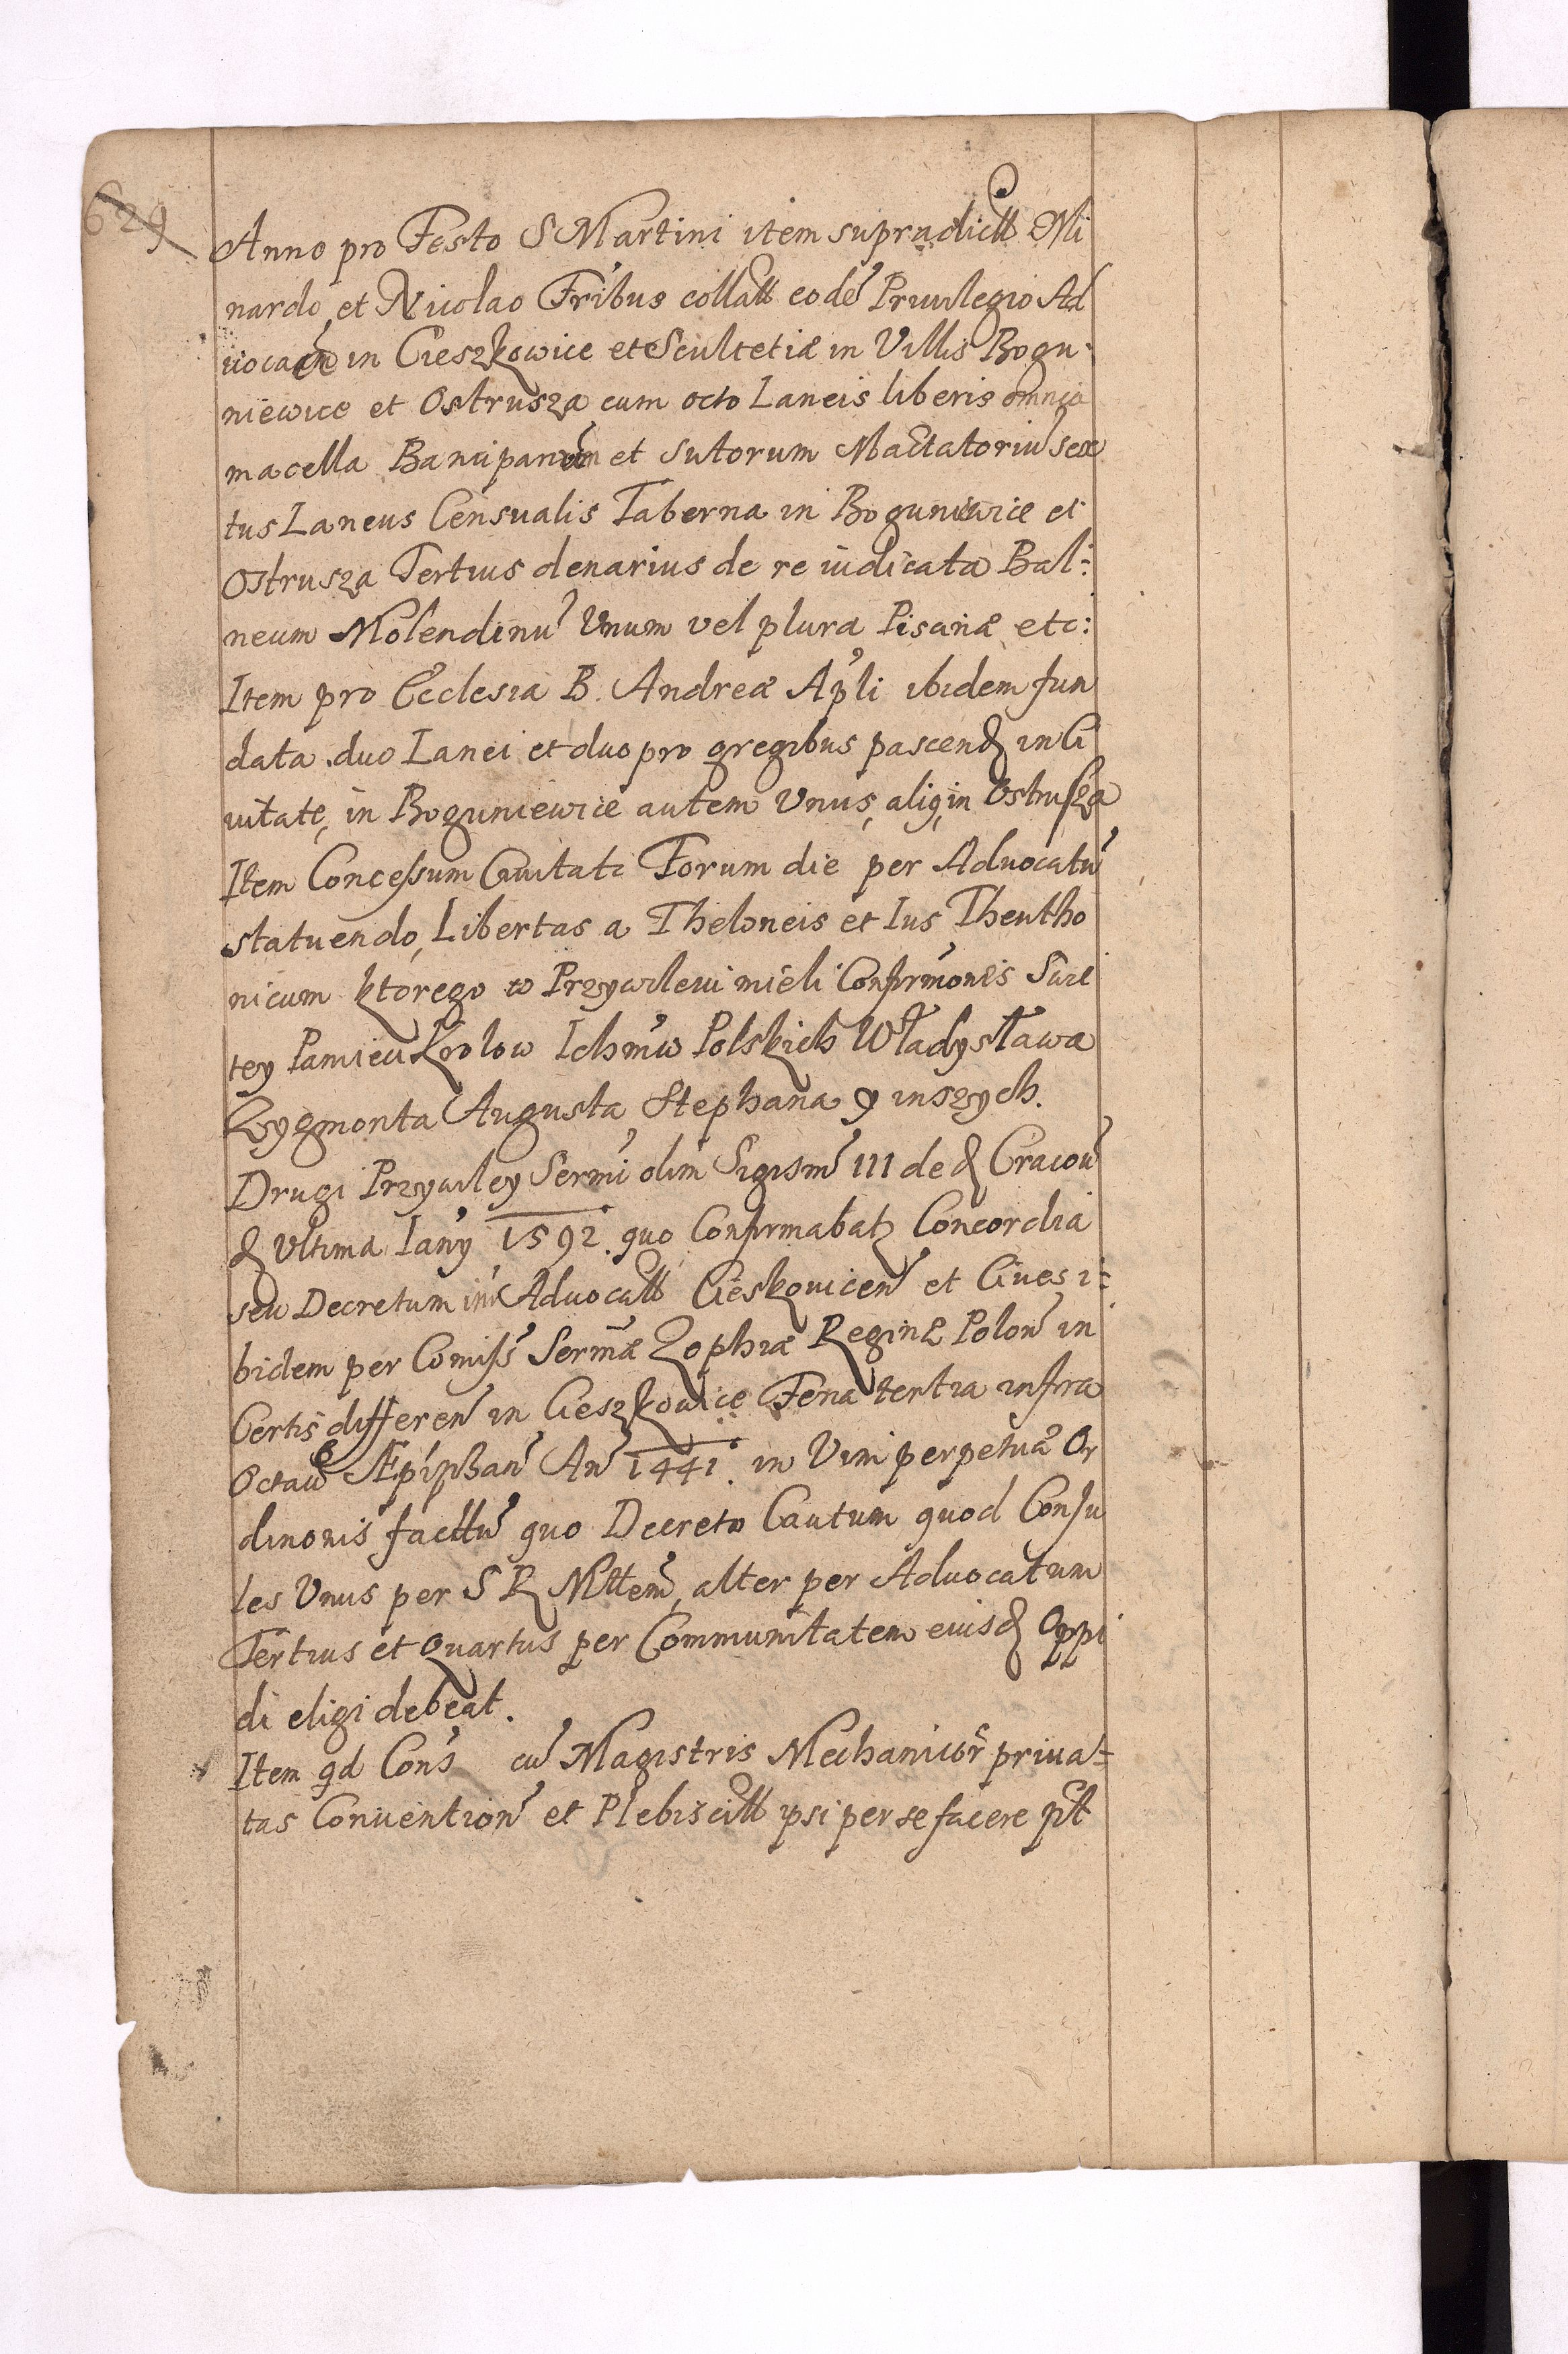 629
Anno pro Festo S Martini item supradictt Mi
nardo, et Nicolao Fr̃ibus collatt eodẽ Priuilegio Ad
uocacẽ in Cieszkowice et Scultetiæ in Villis Bogu:
niewice et Ostrusza cum octo Laneis liberis omnia
macella Panū et Sutorum Mactatoriũ sex
tus Laneus Censualis Taberna in Boguniewice et
Ostrusza Tertius denarius de re iudicata Bal:
neum Molendinũ Vnum vel plura Pisanæ etc:
Item pro Ecclesia B. Andreæ Ap̃li ibidem fun
data duo Lanei et duo pro gregibus pascend in Ci
uitate, in Boguniewice autem Vnus, aliq in Ostrusza
Item Concessum Ciuitati Forum die per Aduocatũ
statuendo, Libertas a Theloneis et Ius Theutho
nicum ktorego to Przywileiu mieli Confirmõnes Swie
tey Pamieci Krolow Ichm̃w Polskich Władysława
Zygmonta Augusta Stephana y inszych.
Drugi Przywiley Serm̃i olim Sigism̃ III de d Cracou̇̃
d Vltima Iañy 1592. quo Confirmabat Concordia
seu Decretum int Aduocatt Cieskouiceñ et Ciues i=
bidem per Comiss̃ Serm̃æ Zophiæ Reginæ Poloñ in
Certis differeñ in Cieszkowice Feria tertia infra
Octaũ Epiphañ Añ 1441. in Vim perpetuæ Or
dinõnis facttũ quo Decreto Cautum quod Consu
les Vnus per S R Mttem̃, alter per Aduocatum
Tertius et Quartus per Communitatem eiusd Oppi
di eligi debeat.
Item qd Cons̃ cũ Magistris Mechanicor̃ priua=
tas Conuentioñ et Plebiscitt ipsi per se facere p̃tt